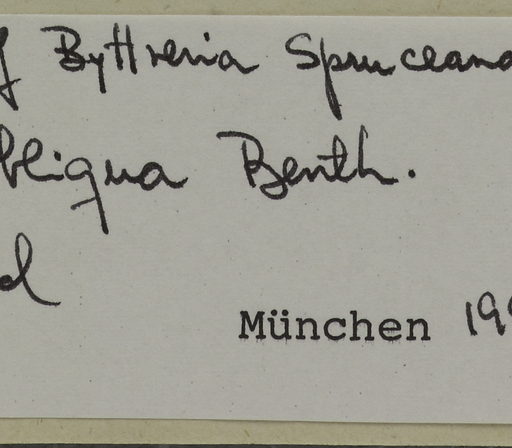 Byttneria Spruceana
obliqua Benth.
München 199